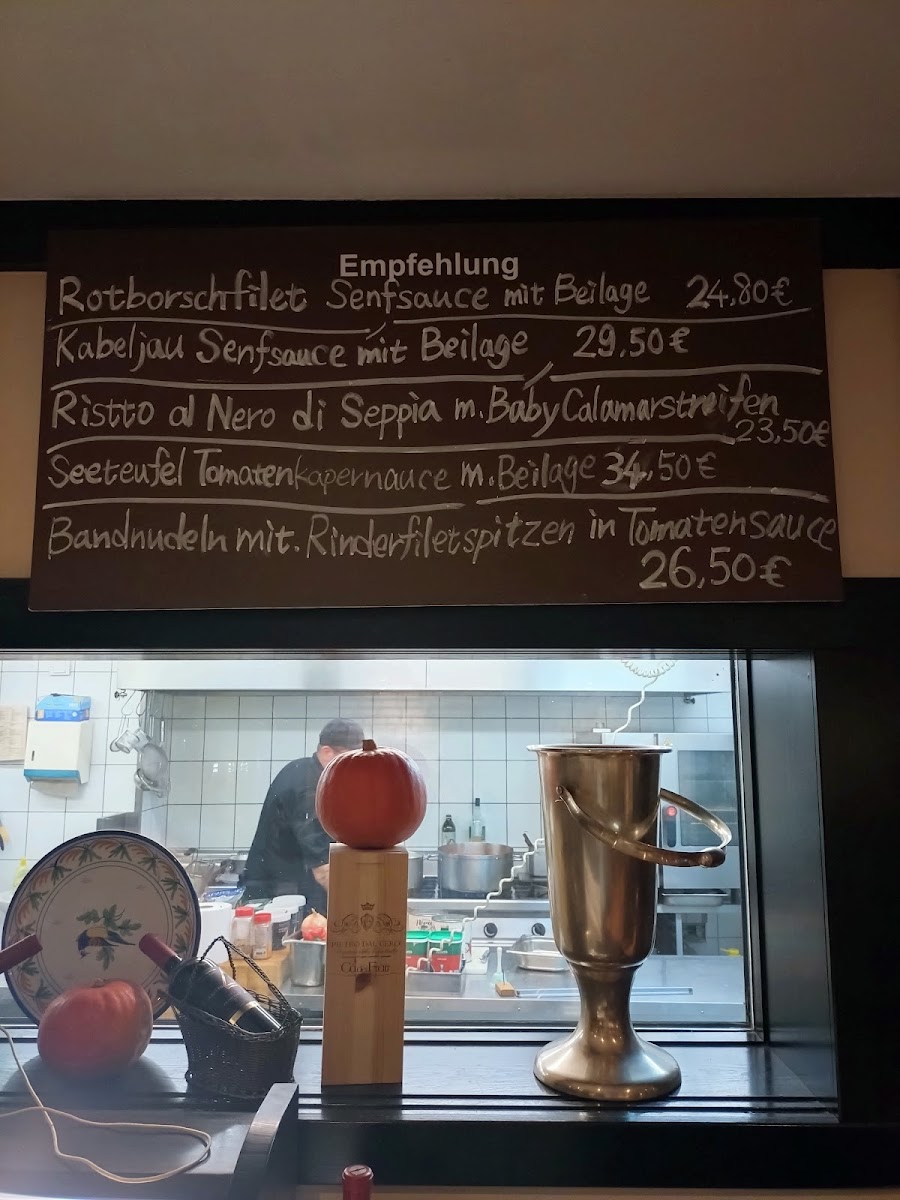 Empfehlung
Rotborschfilet Senfsauce mit Beilage 24,80€
Kabeljau Senfsauce mit Beilage 29,50€
Ristto al Nero di Seppia m. Baby Calamarstreifen
23,50€
Seeteufel Tomatenkapernauce m. Beilage 34,50€
Bandnudeln mit. Rinderfiletspitzen in Tomatensauce
26,50€